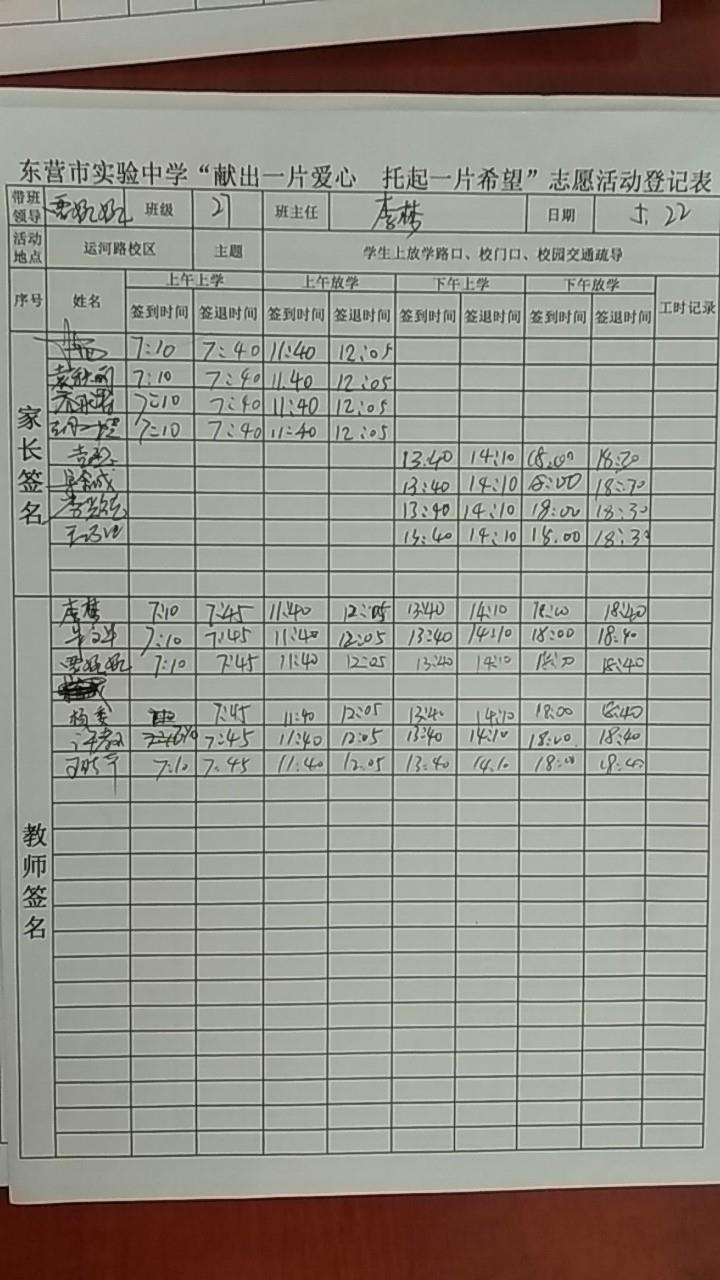 东营市实验中学“献出一片爱心 托起一片希望”志愿活动登记表
带班领导 班级 27 班主任 李梦 日期 5.22
活动地点 运河路校区 主题 学生上放学路口、校门口、校园交通疏导
序号 姓名 上午上学 上午放学 下午上学 下午放学 工时记录
签到时间 签退时间 签到时间 签退时间 签到时间 签退时间 签到时间 签退时间
家长签名
7:10 7:40 11:40 12:05
7:10 7:40 11.40 12:05
7:10 7:40 11:40 12:05
7:10 7:40 11:40 12:05
13:40 14:10 18:00 18:30
13:40 14:10 18:00 18:30
13:40 14:10 18:00 18:30
13:40 14:10 18:00 18:30
教师签名
李梦 7:10 7:45 11:40 12:05 13:40 14:10 18:00 18:40
7:10 7:45 11:40 12:05 13:40 14:10 18:00 18:40
7:10 7:45 11:40 12:05 13:40 14:10 18:40
杨委 7:45 11:40 12:05 13:40 14:10 18:00 18:40
7:45 11:40 12:05 13:40 14:10 18:00 18:40
7:10 7:45 11:40 12:05 13:40 14:10 18:00 18:40